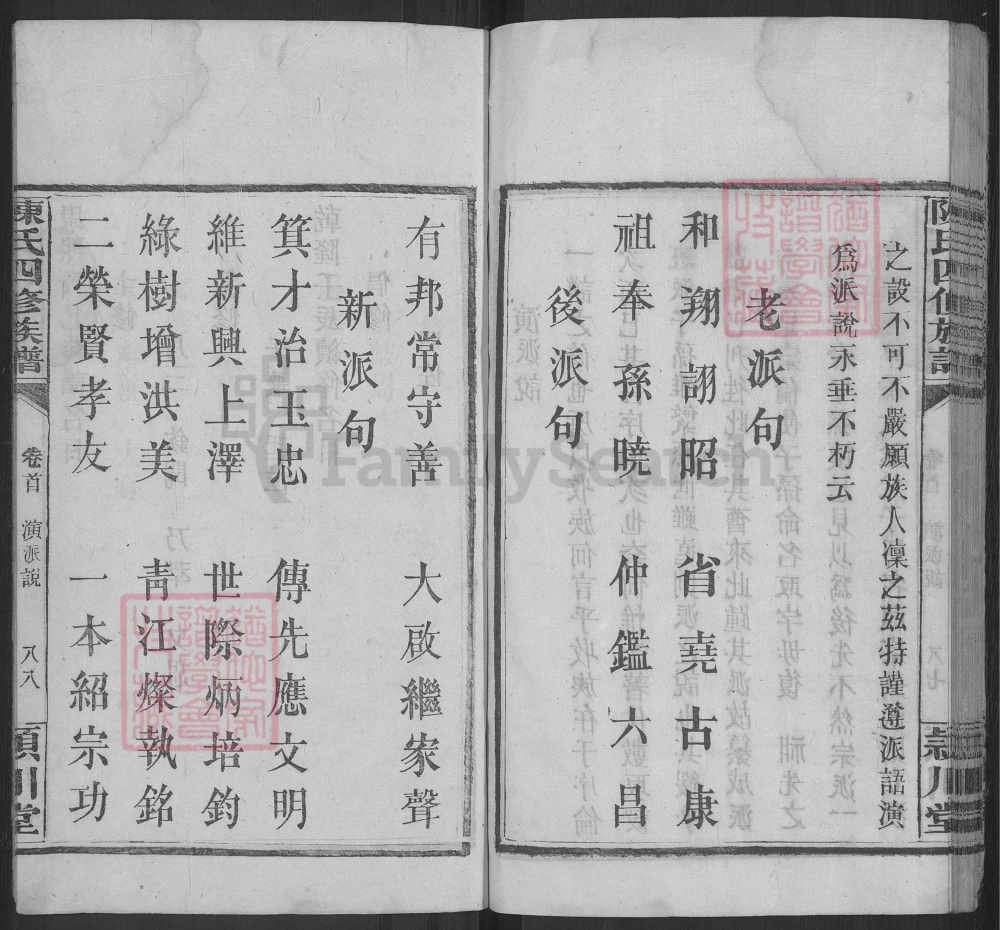 之設不可不嚴願族人凜之茲特謹遵派語演
爲派說永垂不朽云
老派句
和翔詡昭 省堯古康
祖奉孫曉 仲鑑六昌
後派句
有邦常守善 大啟繼家聲
新派句
箕才治玉忠 傳先應文明
維新興上澤 世際炳培鈞
綠樹增洪美 青江燦執銘
二榮賢孝友 一本紹宗功
陳氏四修族譜
卷首 演派說 八八
潁川堂
FamilySearch